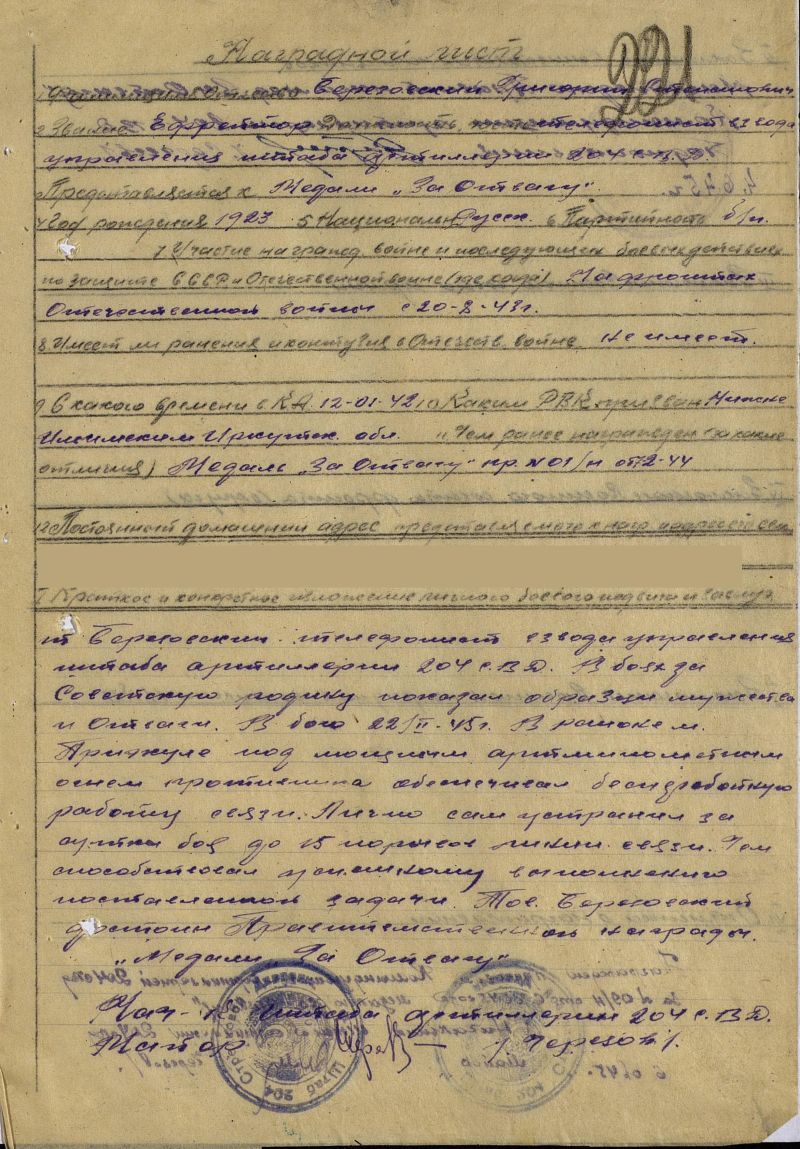 Наградной лист
221
1 Фамилия имя Отчество Березовский Григорий
2 Звание Ефрейтор Должность телефонист взвода
управления штаба артиллерии 204 с.в.Д.
Представляется к Медали „За Отвагу"
4 Год рождения 1923 5 Национальн Русск. 6 Партийность б/п.
7 Участие на гражд. войне и последующих боевых действиях
по защите СССР и Отечественной войне (где когда) На фронтах
Отечественной войны с 20-8-43г.
8 Имеет ли ранения и контузия в Отечеств. войне Не имеет.
9 С какого времени в КА. 12-01-42 10 Каким РВК призван Нижне
Илимским Иркутск. обл. 11 Чем ранее награжден (за какие
отличия) Медаль „За Отвагу" пр. №01/н от 2-44
12 Постоянный домашний адрес представляемого к нагр. и адрес его сем.
I Краткое и конкретное изложение личного боевого подвига и заслуг
Березовский телефонист взвода управления
штаба артиллерии 204 с.в.Д. В боях за
Советскую родину показал образцы мужества
и Отваги. В бою 22/II-45г. В районе м.
Прижуле под мощным артминометным
огнем противника обеспечивал
работу связи. Лично сам устранил за
сутки боя до 15 порывов линии связи. Чем
способствовал успешному выполнению
поставленной задачи. Тов. Березовский
достоин Правительственной награды.
„Медали „За Отвагу"
Нач-к Штаба артиллерии 204 с.в.Д.
Майор / Терехов /.